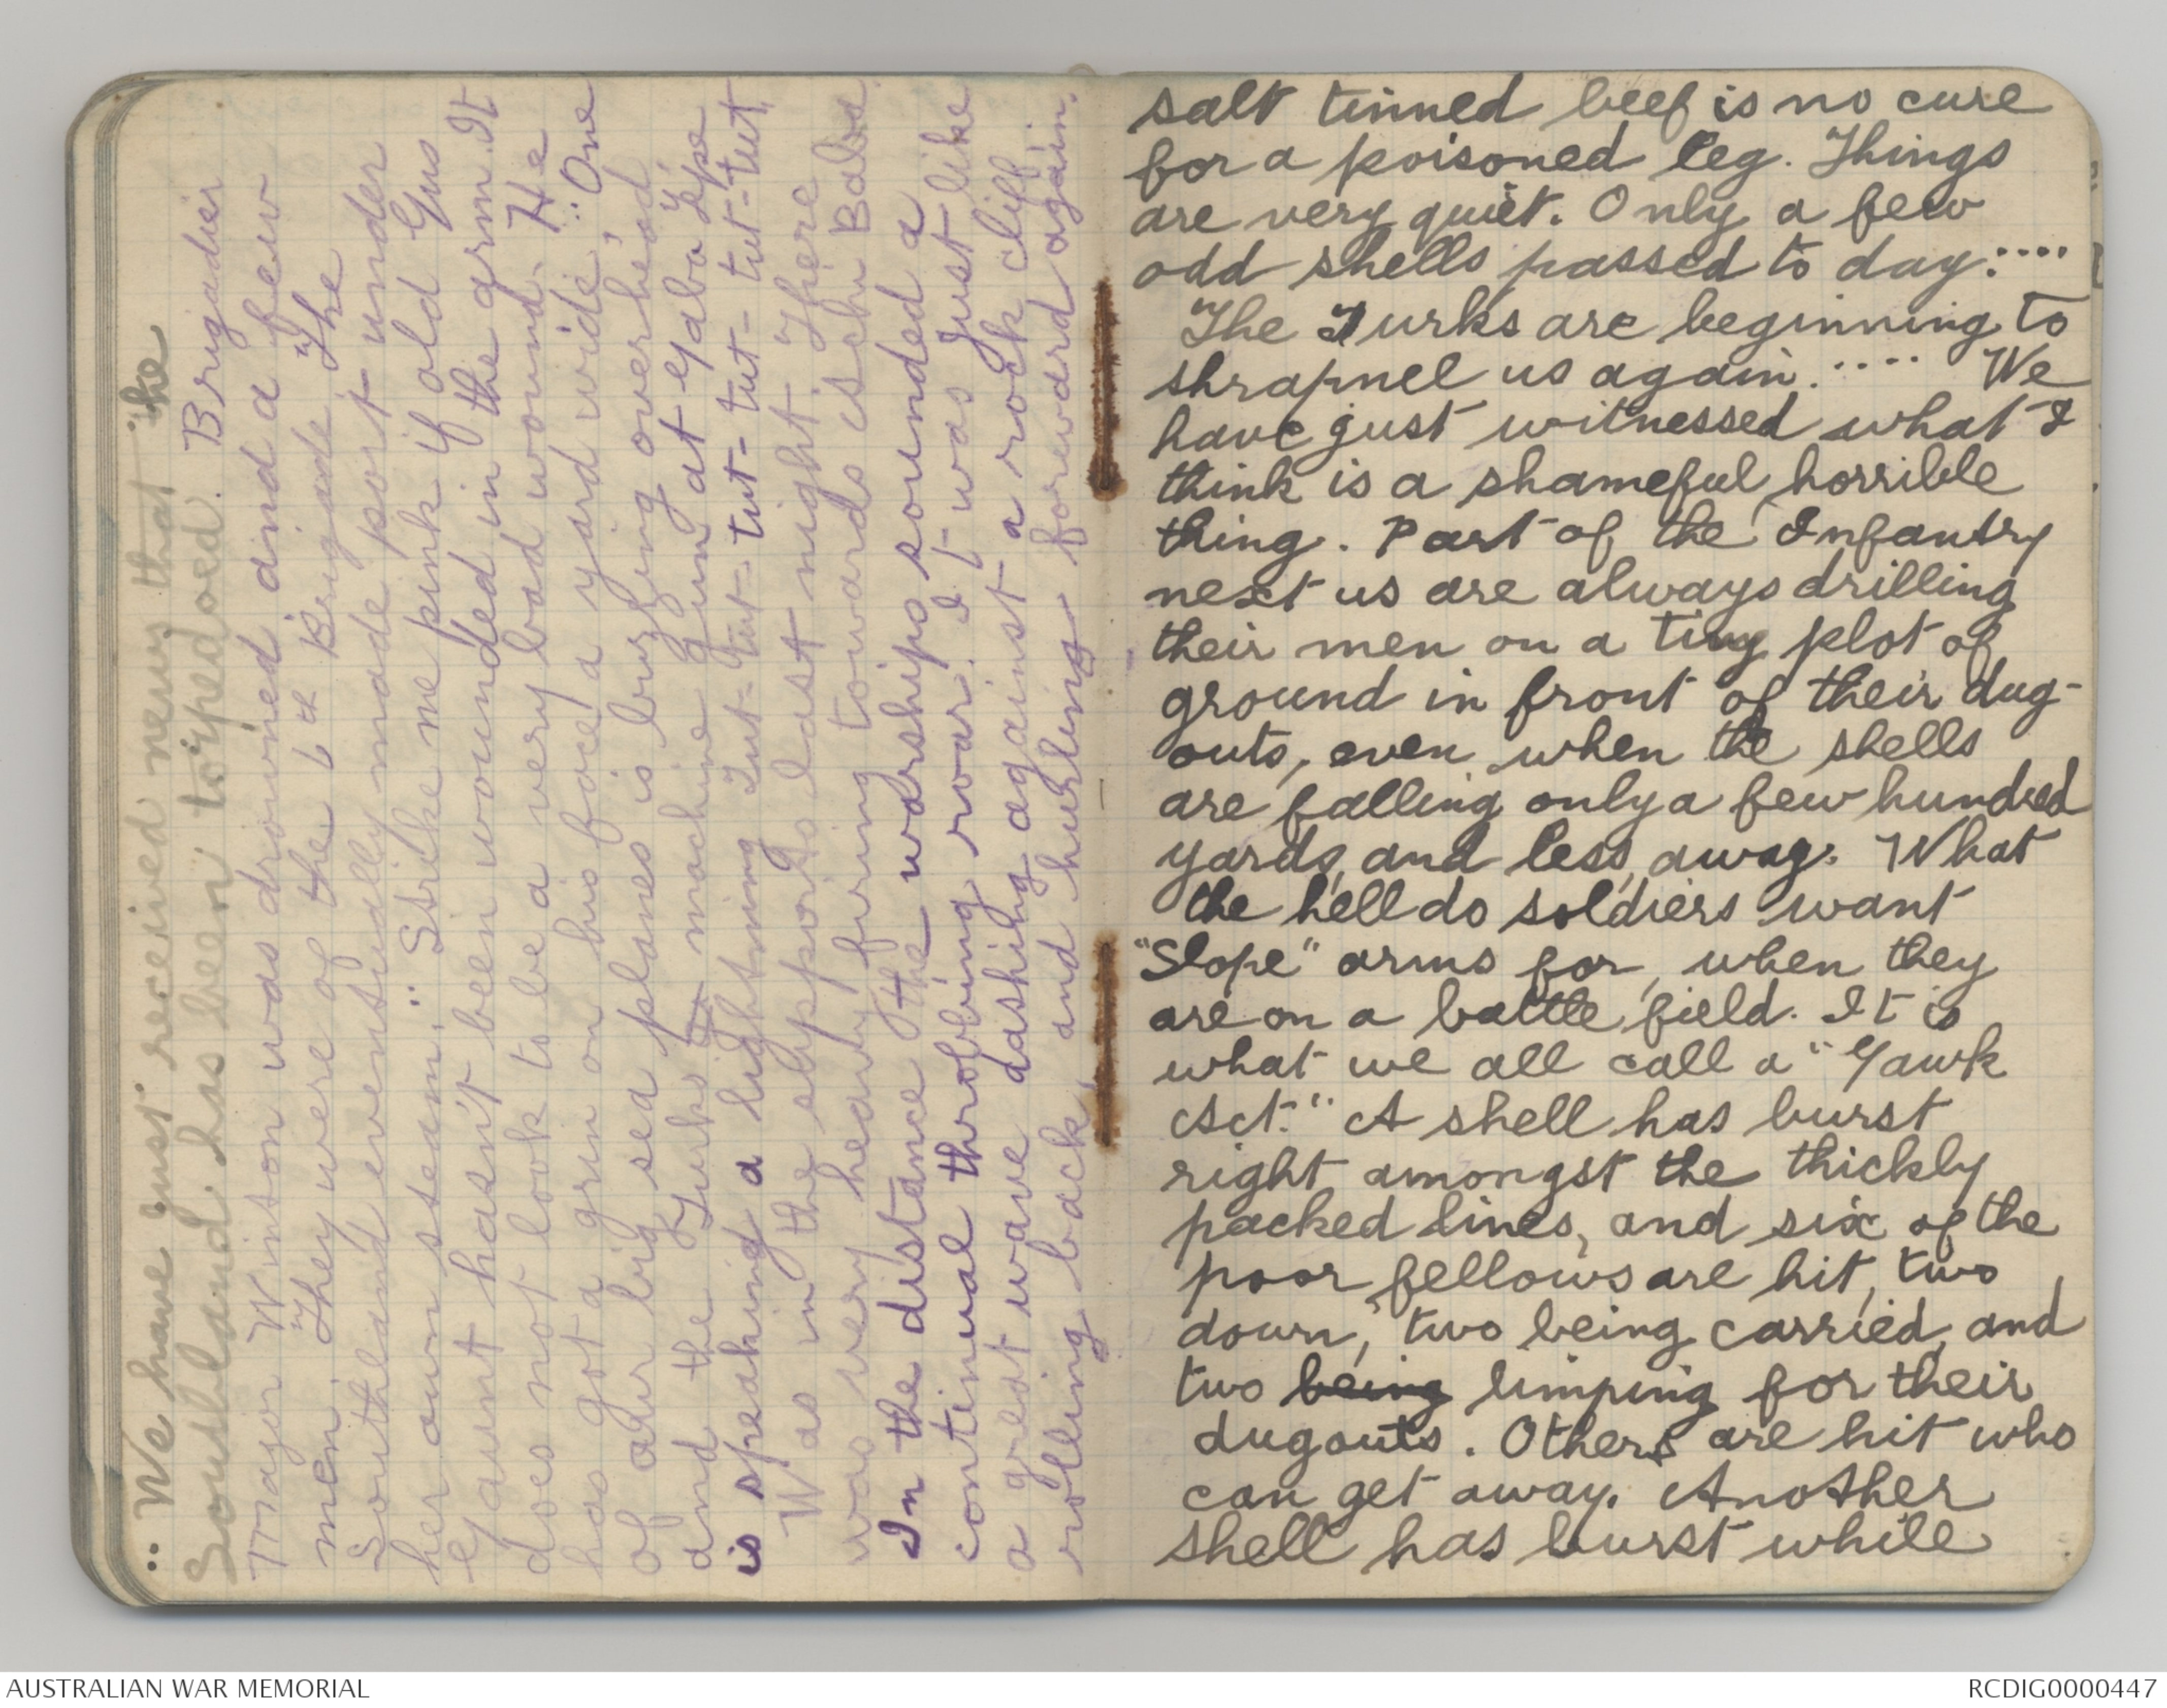 :: We have just received news that "he
Southland" has been torpedoed. Brigadier
Major Winson was drowned and a few
men. They were of the 6th Brigade. "The
Southland eventually made port under
her own steam. :: Strike me pink if old Gus
Gaunt hasn't been wounded in the arm. It
does not look to be a very bad wound. He
has got a grin on his face a yard wide, :: One
of our big sea planes is buzzing overhead
and the Turks machine gun at Gaba Tepe
is speaking a lightning Tut-tut-tut-tut-tut-tut-tut-tut
Was in the supports last night. There
was very heavy firing towards Achi Baba.
In the distance the warships sounded a
continual throbbing roar. It was just like
a great wave dashing against a rock cliff,
rolling back, and hurling foreword again.
salt tinned beef is no cure
for a poisoned leg. Things
are very quiet. Only a few
odd shells passed to day:····
The Turks are beginning to
shrapnel us again.···· We
have just witnessed what I
think is a shameful, horrible
thing. Part of the Infantry
next us are always drilling
their men on a tiny plot of
ground in front of their dug-
outs, even when the shells
are falling only a few hundred
yards, and less, away. What
the hell do soldiers want
"Slope" arms for, when they
are on a battle field. It is
what we all call a "Gawk
Act." A shell has burst
right amongst the thickly
packed lines, and six of the
poor fellows are hit, two
down, two being carried, and
two being limping for their
dugouts. Others are hit who
can get away. Another
shell has burst while
AUSTRALIAN WAR MEMORIAL
RCDIG0000447